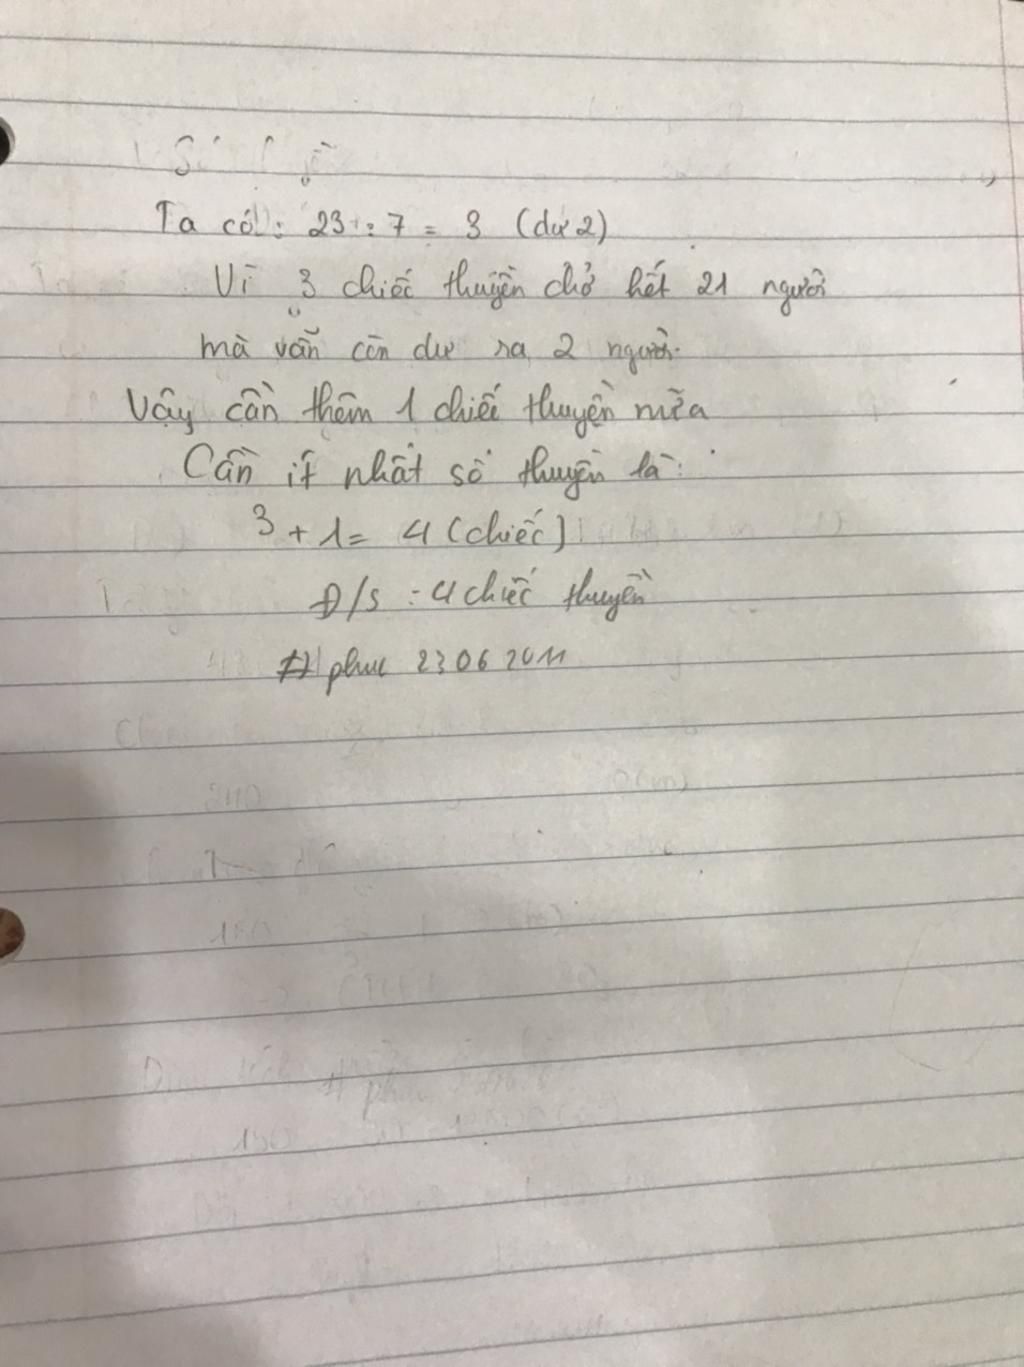 Ta có: 23 : 7 = 3 (dư 2)
Vì 3 chiếc thuyền chở hết 21 người
mà vẫn còn dư ra 2 người.
Vậy cần thêm 1 chiếc thuyền nữa
Cần ít nhất số thuyền là:
3 + 1 = 4 (chiếc)
Đ/S : 4 chiếc thuyền
#phuc 23062011